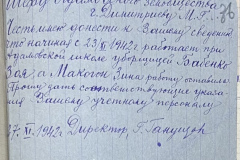 г. Димитриеву М. Г. 76
Честь имею донести к Вашему сведению
что начиная с 23/XI 1942 г. работает при
школе уборщицей Бабенко
Зоя, а Макогон Зина работу оставила
Прошу дать соответствующие указа-
ния Вашему учетному персоналу
27/XI 1942 г. Директор, Г.